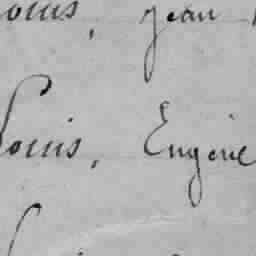 Louis, Jean
Louis, Eugène